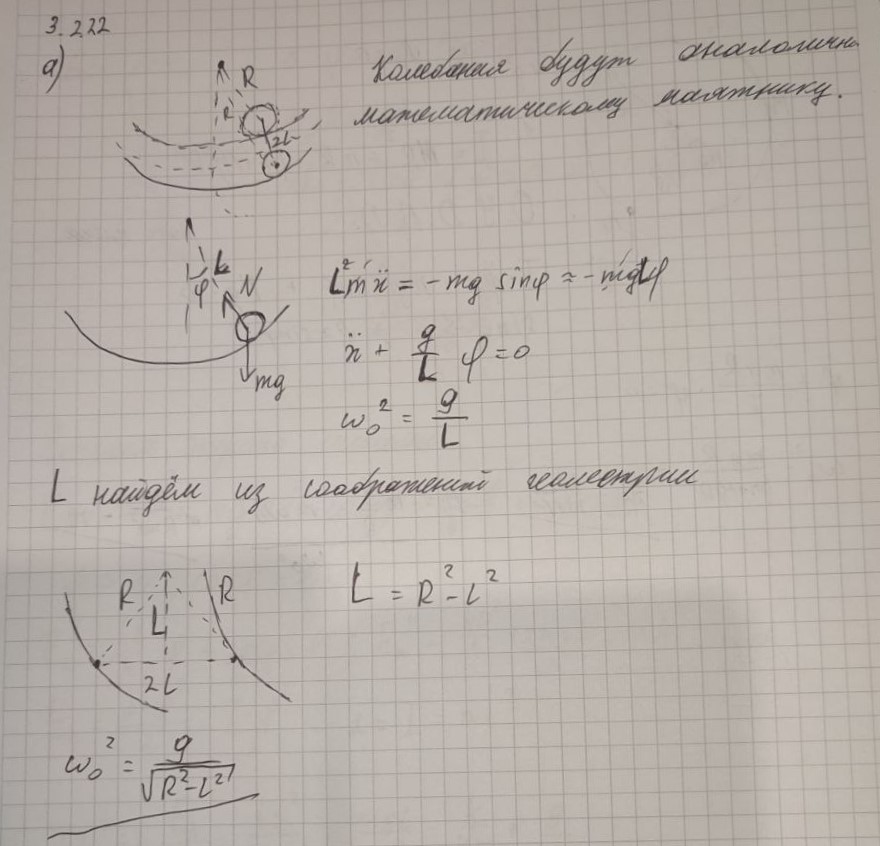 3.222
а)
R
R
2L
Колебания будут аналогичны
математическому маятнику.
L
φ
N
mg
L²mẍ = -mg sinφ ≈ -mgLφ
ẍ + g/L φ = 0
ω₀² = g/L
L найдём из соображений геометрии
R
R
L
2L
L = R² - L²
ω₀² = g/√(R²-L²)